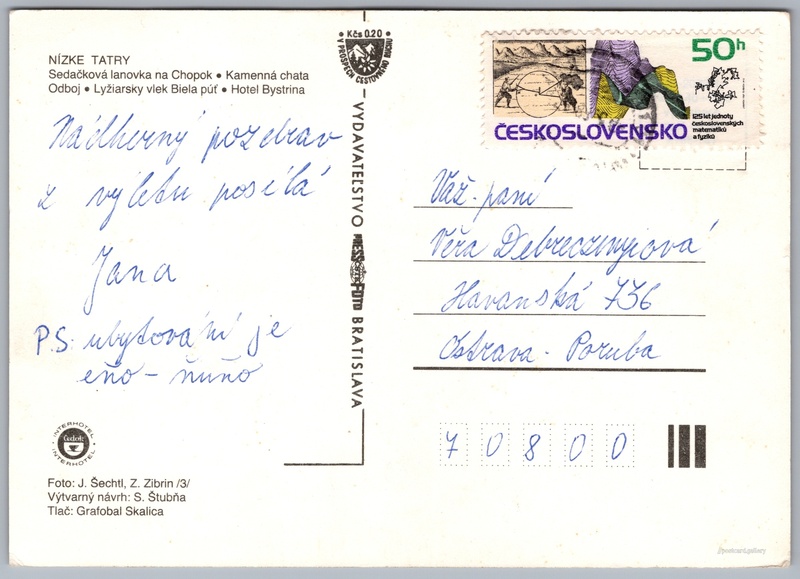 NÍZKE TATRY
Sedačková lanovka na Chopok • Kamenná chata
Odboj • Lyžiarsky vlek Biela púť • Hotel Bystrina
Nádherný pozdrav
z výletu posílá
Jana
P.S. ubytování je
eňo - ňuňo
INTERHOTEL
Čedok
INTERHOTEL
Foto: J. Šechtl, Z. Zibrin /3/
Výtvarný návrh: S. Štubňa
Tlač: Grafobal Skalica
Kčs 0.20
V PROSPECH CESTOVNÉHO RUCHU
VYDAVATEĽSTVO
PRESSFOTO
BRATISLAVA
50h
125 let jednoty
československých
matematiků
a fyziků
ČESKOSLOVENSKO
Váž. paní
Věra Debreczenyiová
Havanská 736
Ostrava - Poruba
70800